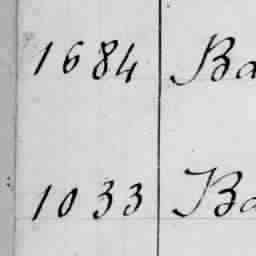 1684 Ba
1033 Ba